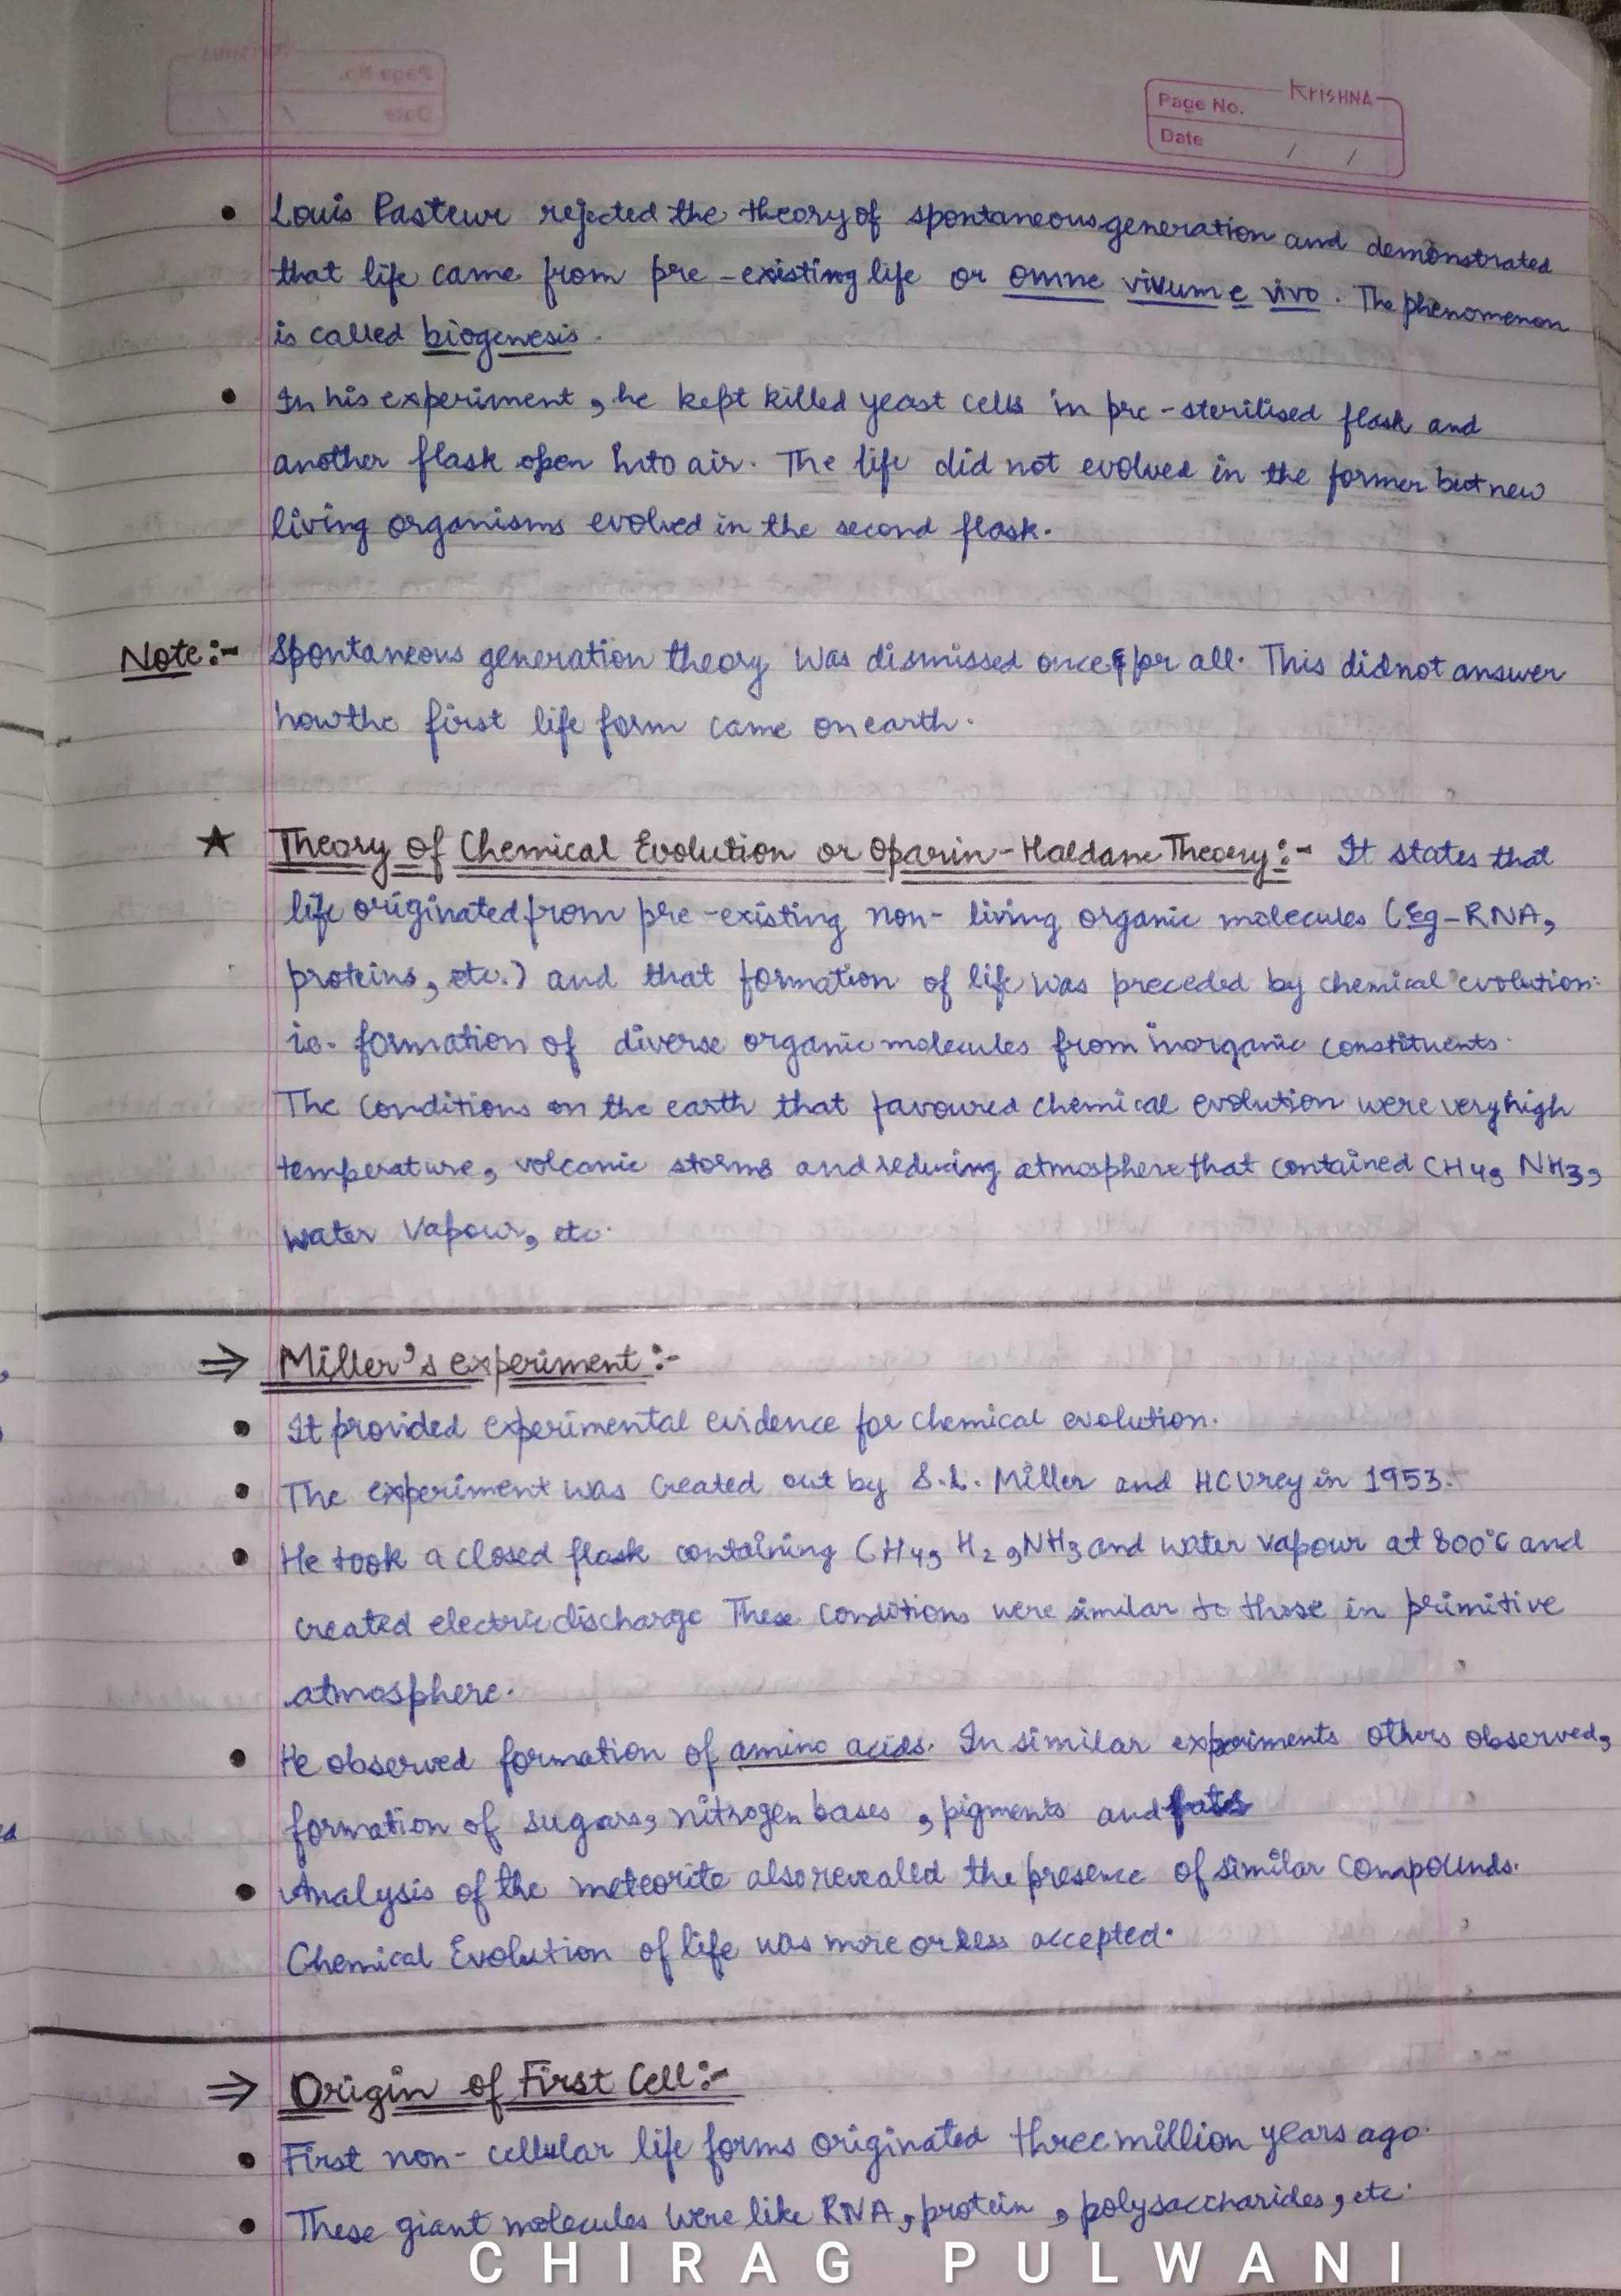 Krishna
Page No.
Date / /
• Louis Pasteur rejected the theory of spontaneous generation and demonstrated
that life came from pre-existing life or omne vivum e vivo. The phenomenon
is called biogenesis.
• In his experiment, he kept killed yeast cells in pre-sterilised flask and
another flask open into air. The life did not evolved in the former but new
living organisms evolved in the second flask.
Note:- Spontaneous generation theory was dismissed once for all. This did not answer
how the first life form came on earth.
★ Theory of Chemical Evolution or Oparin-Haldane Theory:- It states that
life originated from pre-existing non-living organic molecules (Eg-RNA,
proteins, etc.) and that formation of life was preceded by chemical evolution.
ie. formation of diverse organic molecules from inorganic constituents.
The conditions on the earth that favoured chemical evolution were very high
temperature, volcanic storms and reducing atmosphere that contained CH4, NH3,
water vapour, etc.
⇒ Miller's experiment:-
• It provided experimental evidence for chemical evolution.
• The experiment was created out by S.L. Miller and HC Urey in 1953.
• He took a closed flask containing CH4, H2, NH3 and water vapour at 800°C and
created electric discharge These conditions were similar to those in primitive
atmosphere.
• He observed formation of amino acids. In similar experiments others observed,
formation of sugars, nitrogen bases, pigments and fats
• Analysis of the meteorite also revealed the presence of similar compounds.
Chemical Evolution of life was more or less accepted.
⇒ Origin of First Cell:-
• First non-cellular life forms originated three million years ago.
• These giant molecules were like RNA, protein, polysaccharides, etc.
CHIRAG PULWANI